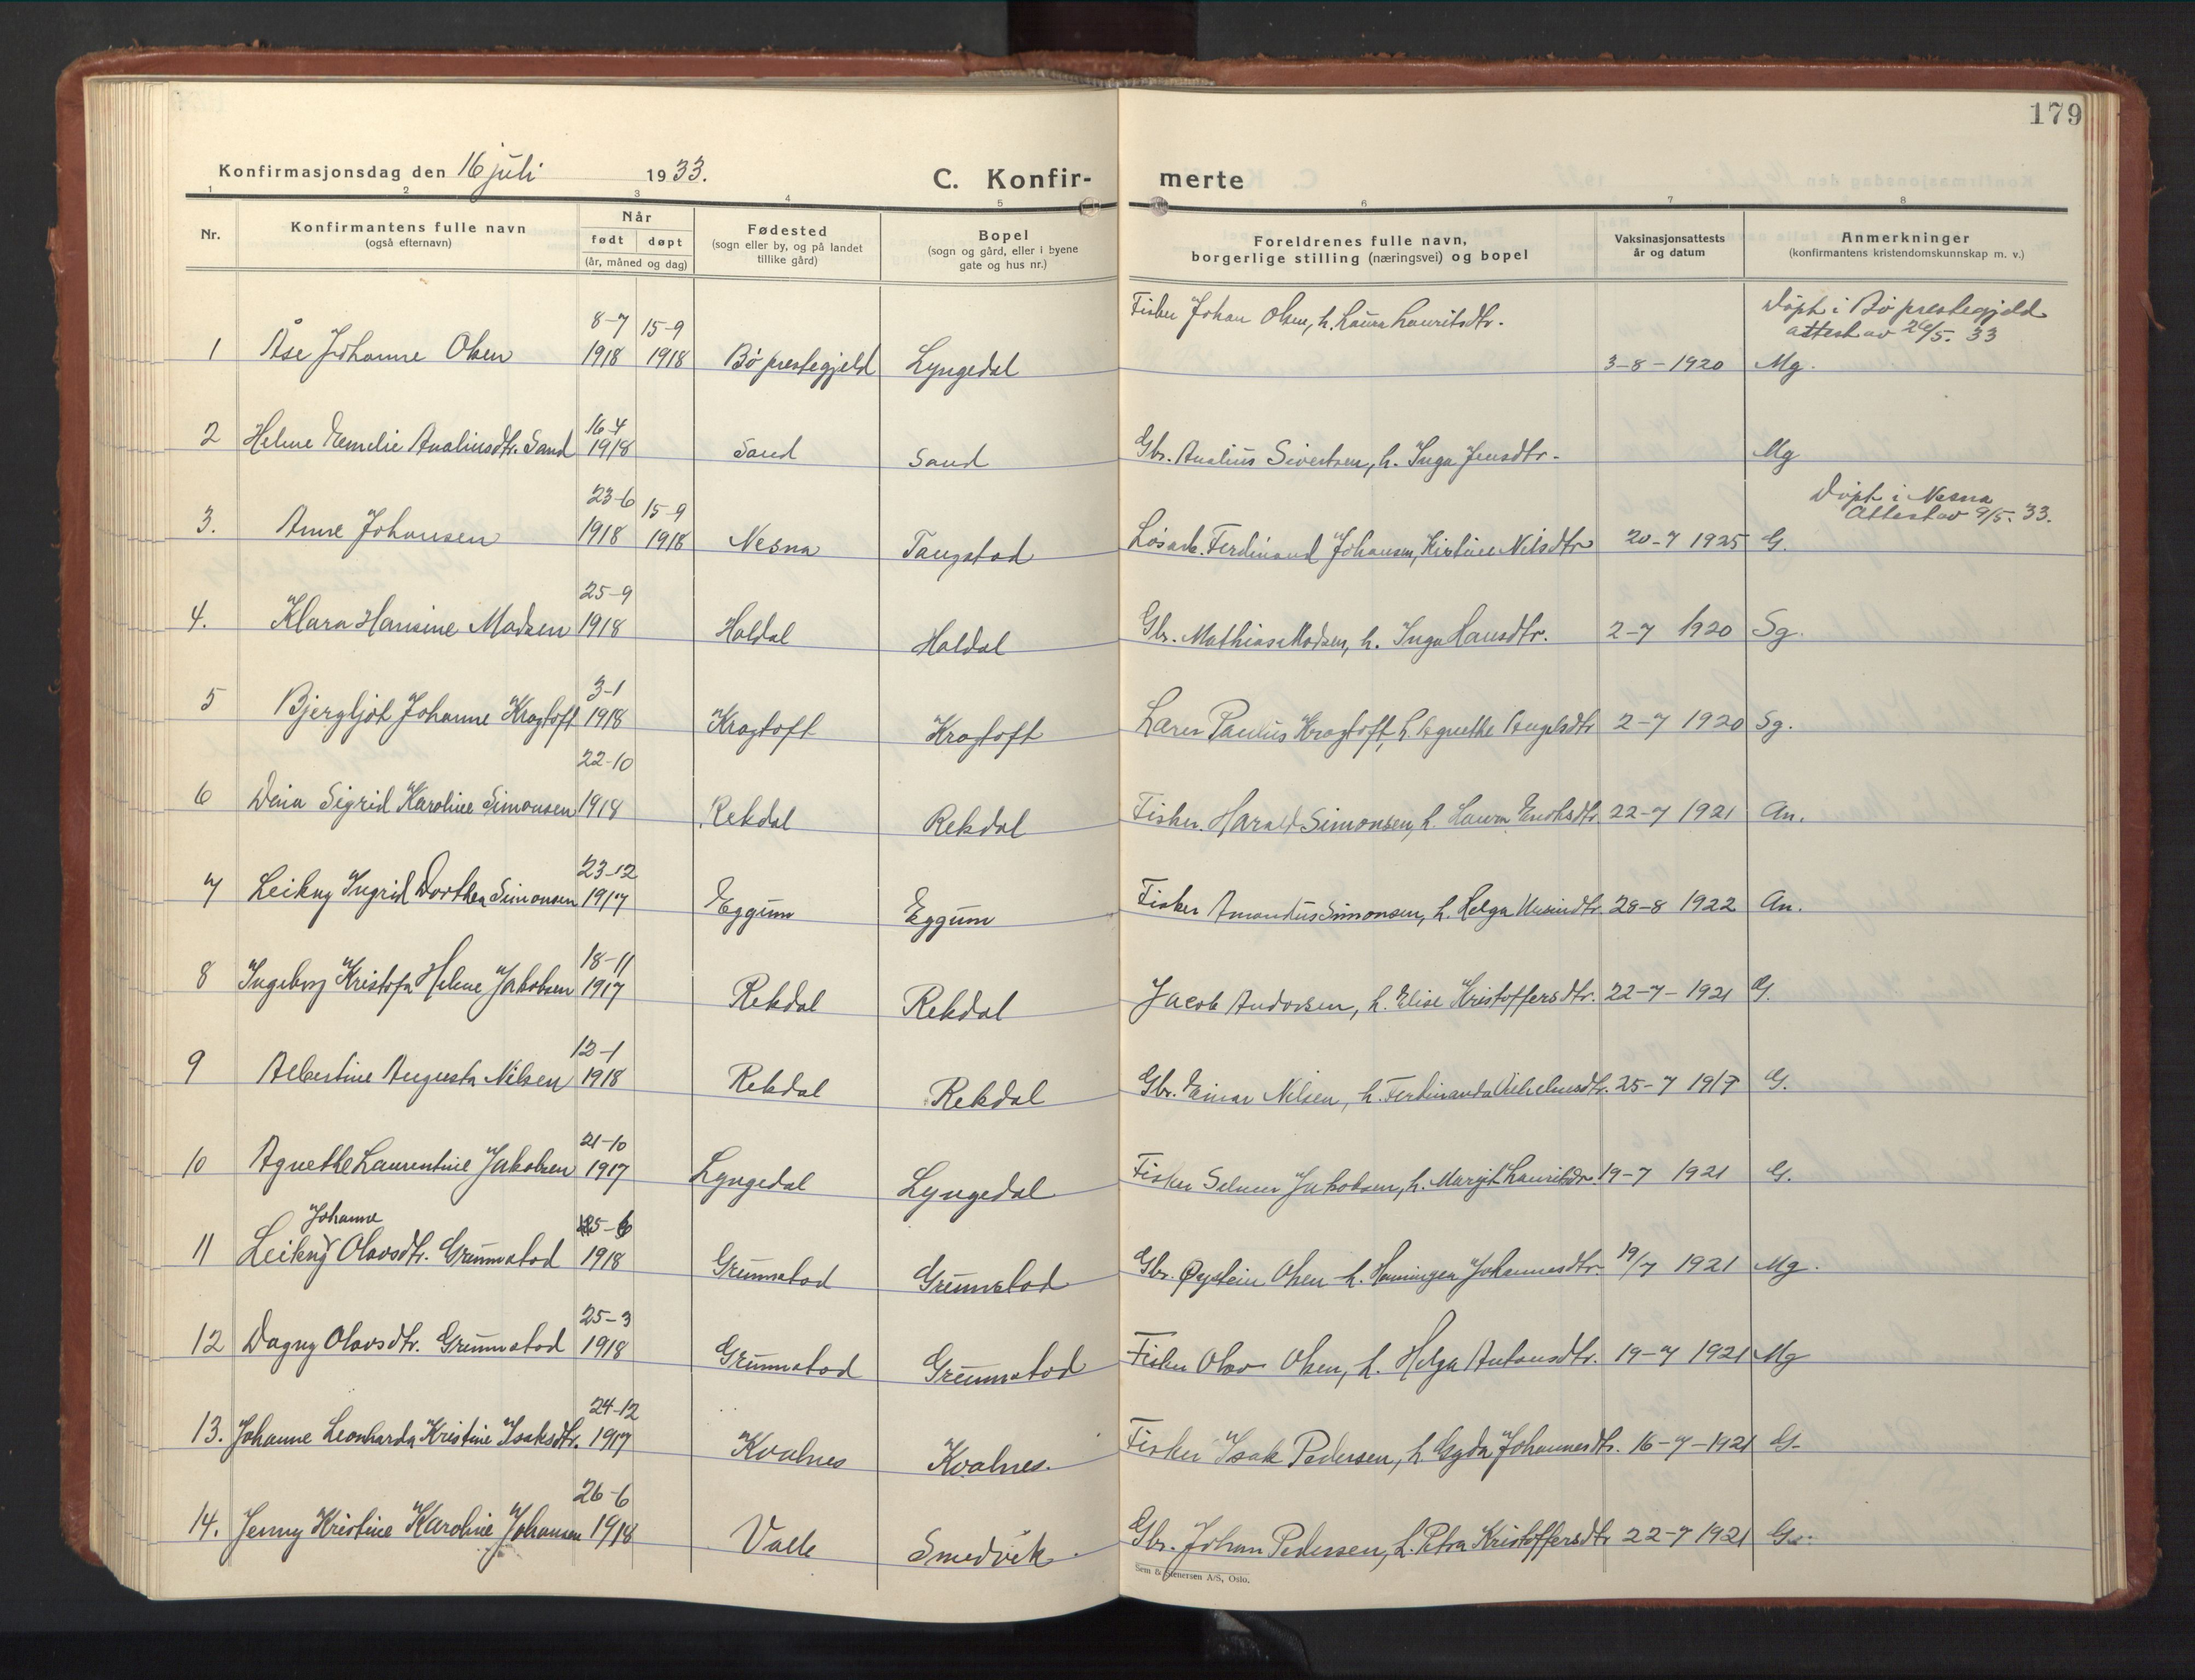 179
Konfirmasjonsdag den 16 juli 1933. C. Konfir- merte
1 2 3 4 5 6 7 8
Nr. Konfirmantens fulle navn (også efternavn) Når født døpt (år, måned og dag) Fødested (sogn eller by, og på landet tillike gård) Bopel (sogn og gård, eller i byene gate og hus nr.) Foreldrenes fulle navn, borgerlige stilling (næringsvei) og bopel Vaksinasjonsattests år og datum Anmerkninger (konfirmantens kristendomskunnskap m. v.)
1 Åse Johanne Olsen 8-7 1918 15-9 1918 Bø prestegjeld Lyngedal Fisker Johan Olsen, h. Laura Lauritsdtr. 3-8-1920 Døpt i Bø prestegjeld attest av 26/5. 33 Mg.
2 Helene Emelie Analiusdtr. Sand 16-4 1918 Sand Sand Gbr. Analius Sivertsen, h. Inga Jensdtr. Mg
3. Anne Johansen 23-6 1918 15-9 1918 Nesna Tangstad Løsarb. Ferdinand Johansen, Kristine Nilsdtr 20-7 1925 Døpt i Nesna Attest av 9/5. 33. G.
4. Klara Hansine Madsen 25-9 1918 Haldal Haldal Gbr. Mathias Madsen, h. Inga Hansdtr. 2-7 1920 Sg.
5 Bjergljot Johanne Kragtoft 3-1 1918 Kragtoft Kragtoft Lærer Paulus Kragtoft, h. Agnethe Engelsdtr 2-7 1920 Sg.
6 Dina Sigrid Karoline Simonsen 22-10 1918 Rekdal Rekdal Fisker. Harald Simonsen, h. Laura 22-7 1921 An.
7 Leikny Ingrid Dorthea Simonsen 23-12 1917 Eggum Eggum Fisker Amandus Simonsen, h. Helga 28-8 1922 An.
8 Ingeborg Kristofa Helene Jakobsen 18-11 1917 Rekdal Rekdal Jacob Andorsen, h. Elise Kristoffersdtr. 22-7-1921 G.
9 Albertine Augusta Nilsen 12-1 1918 Rekdal Rekdal Gbr. Einar Nilsen, h. Ferdinanda Vilhelmsdtr. 25-7 1919 G.
10 Agnethe Laurentine Jakobsen 21-10 1917 Lyngedal Lyngedal Fisker Selmer Jakobsen, h. Margit Lauritsdtr. 19-7 1921 G.
Johanne
11 Leikny Olavsdtr. Grunnstad 25-6 1918 Grunnstad Grunnstad Gbr. Øystein Olsen h. Henningea Johannesdtr. 19/7 1921 Mg.
12 Dagny Olavsdtr. Grunnstad 25-3 1918 Grunnstad Grunnstad Fisker Olav Olsen, h. Helga Antonsdtr. 19-7 1921 Mg
13. Johanne Leonharda Kristine Isaksdtr. 24-12 1917 Kvalnes Kvalnes. Fisker Isak Pedersen, h. Gyda Johannesdtr. 16-7-1921 G.
14. Jenny Kristine Karoline Johansen 26-6 1918 Valle Smedvik Gbr. Johan Pedersen, h. Petra Kristoffersdtr 22-7 1921 G.
Sem & Stenersen A/S, Oslo.